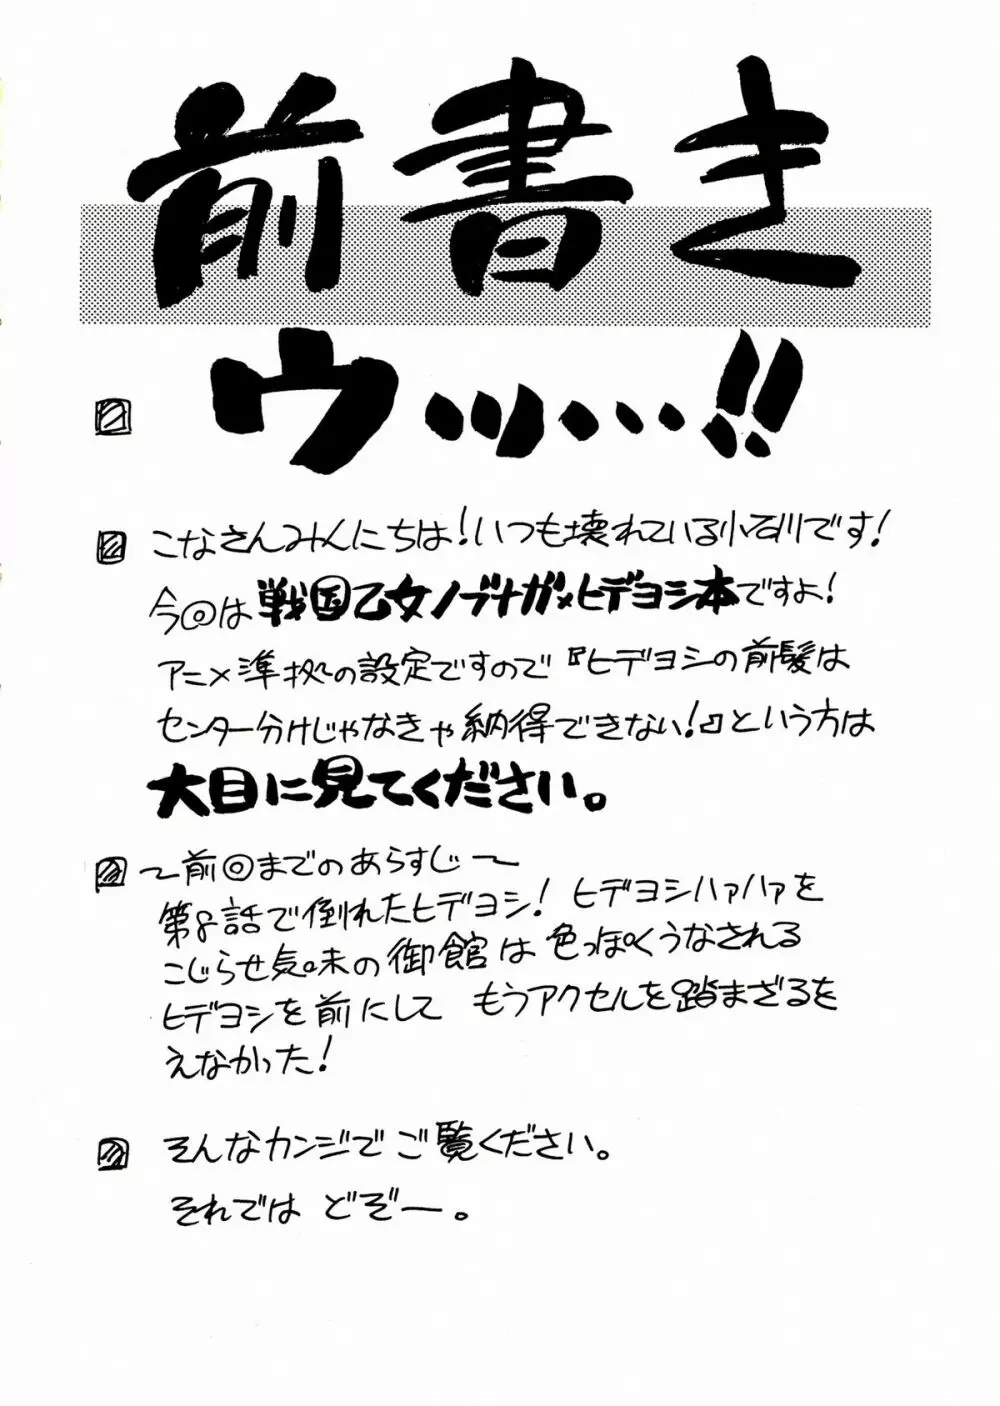 前書き
ウッ…!!
こなさんみんにちは!いつも壊れている小石川です!
今回は戦国乙女ノブナガ×ヒデヨシ本ですよ!
アニメ準拠の設定ですので『ヒデヨシの前髪は
センター分けじゃなきゃ納得できない!』という方は
大目に見てください。
～前回までのあらすじ～
第8話で倒れたヒデヨシ! ヒデヨシハァハァを
こじらせ気味の御館は色っぽくうなされる
ヒデヨシを前にして もうアクセルを踏まざるを
えなかった!
そんなカンジでご覧ください。
それでは どぞー。